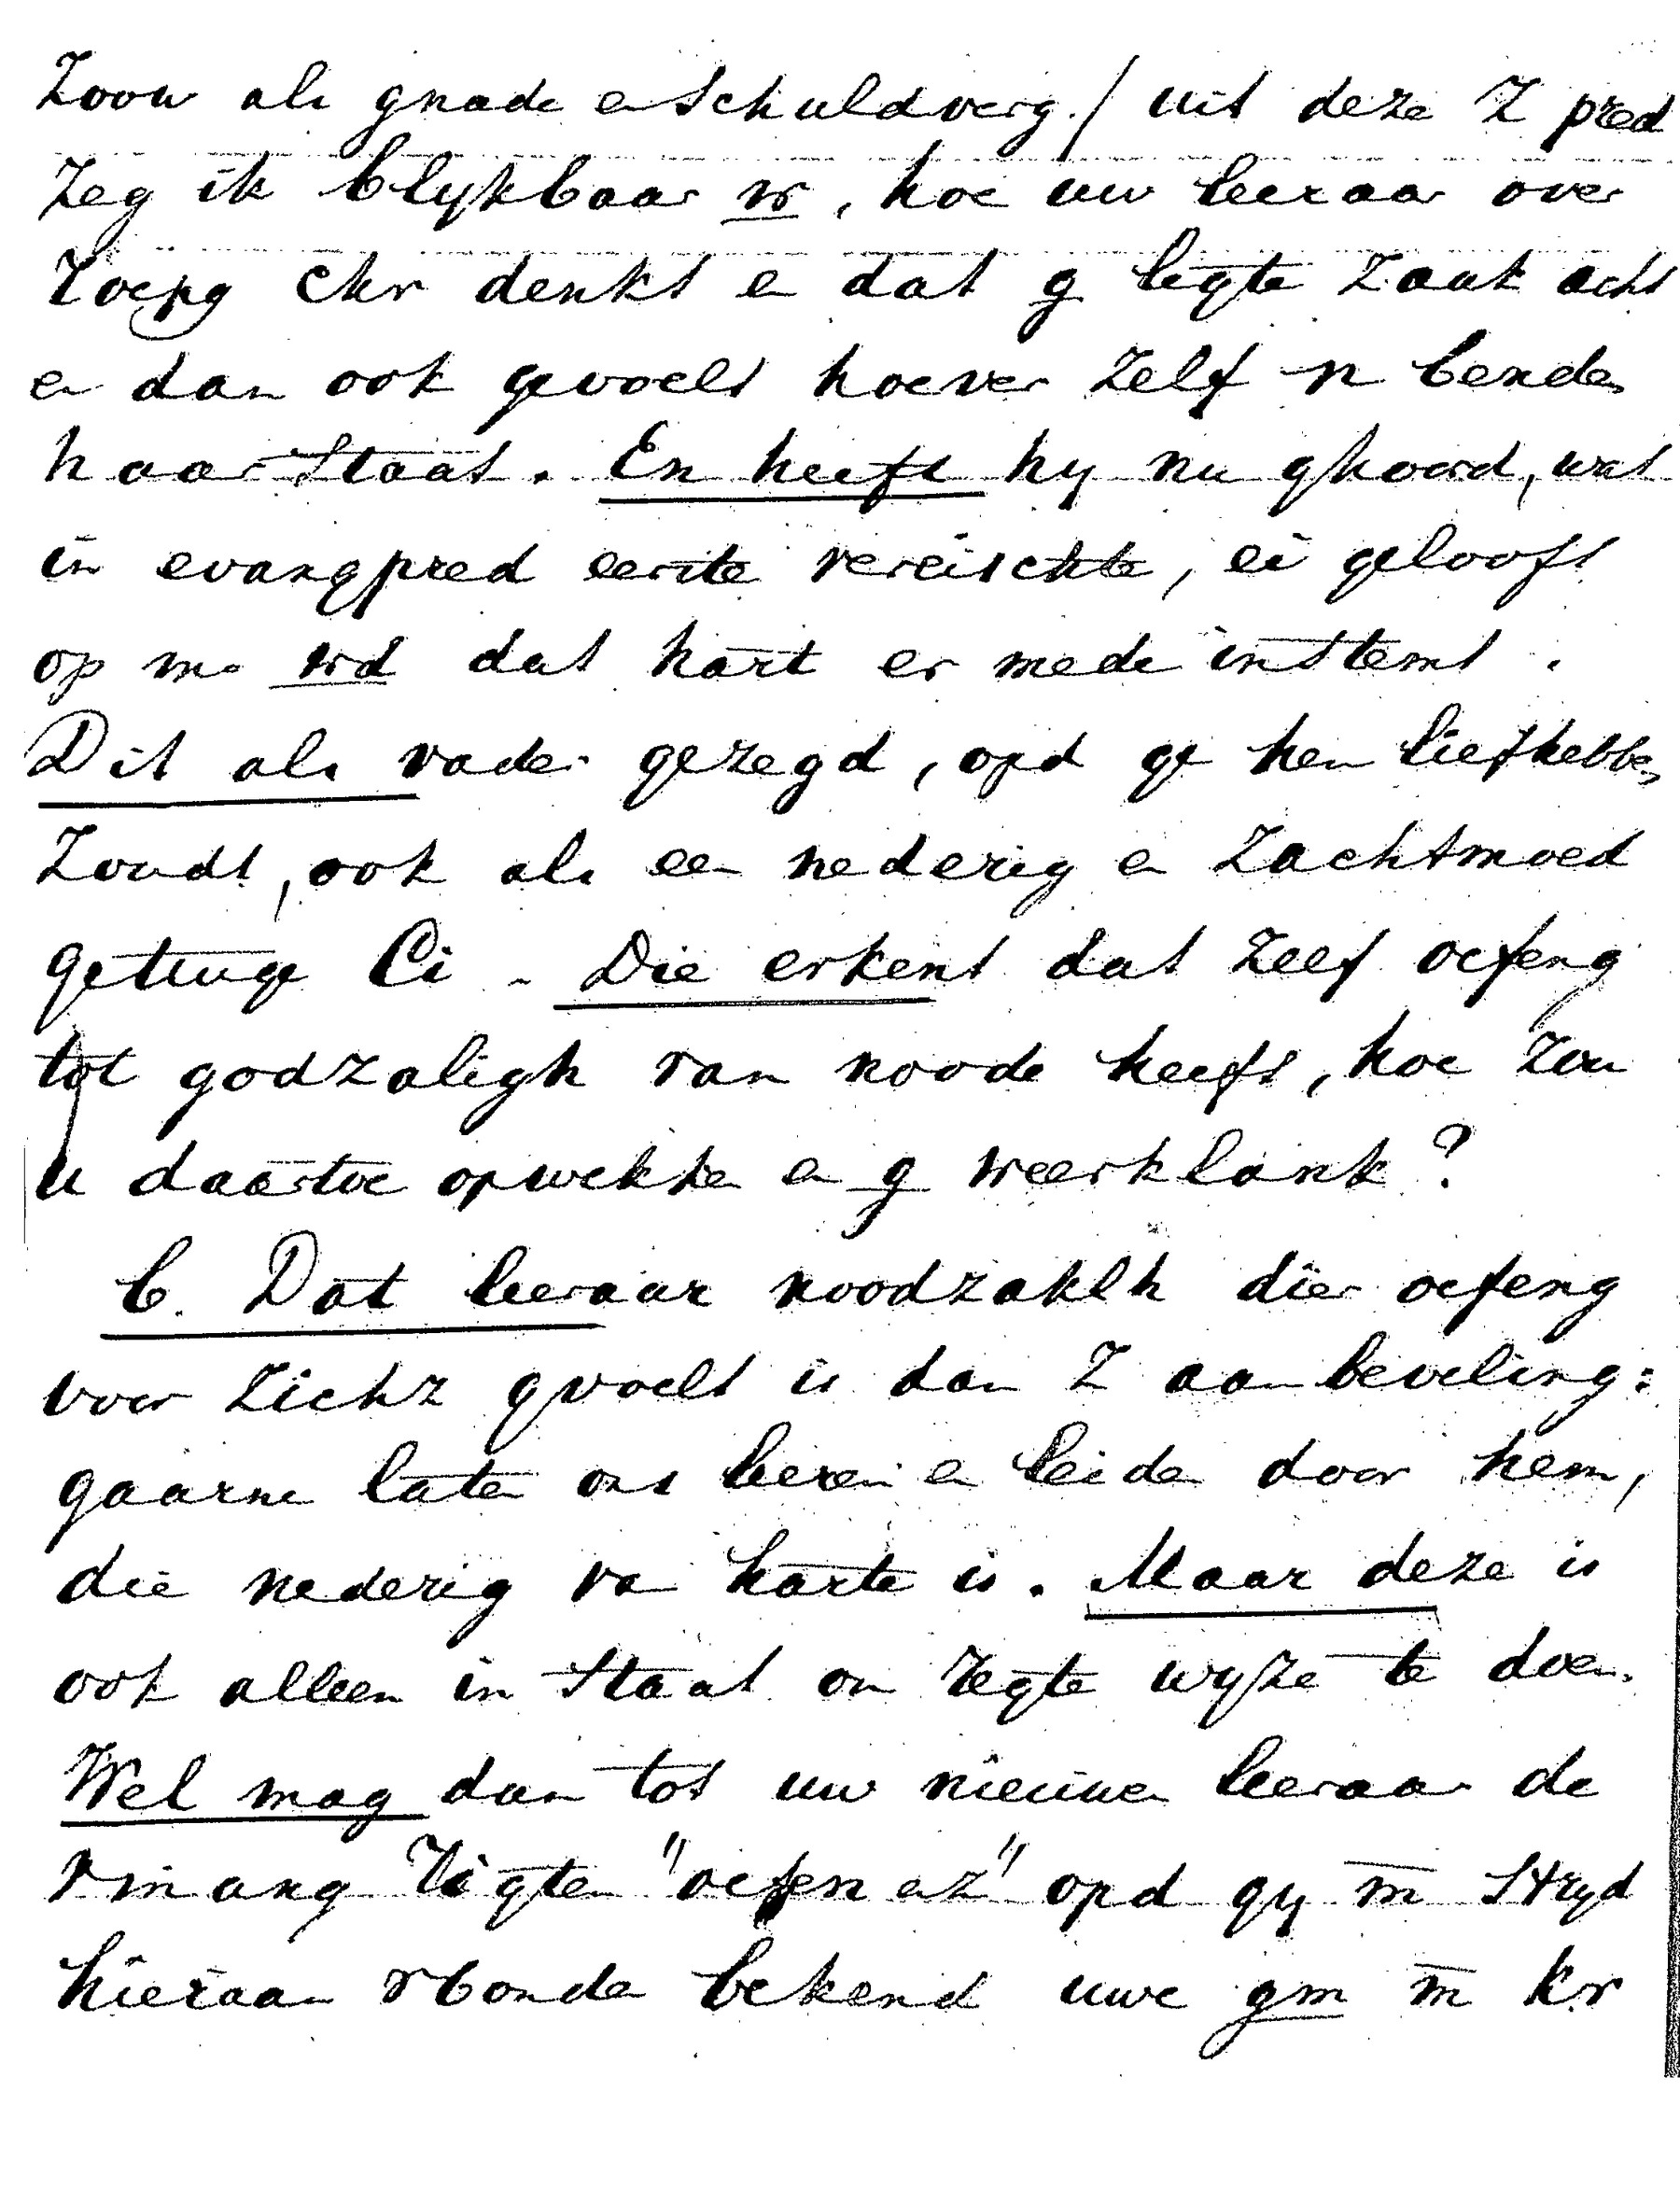 Zoon als gnade en schuldverg./ uit deze Z pred
Zeg ik blijkbaar w, hoe uw leeraar over
roepg Chr denkt e dat g ligte zaak acht
e dan ook gevoelt hoever zelf n beneden
haar staat. En heeft hij nu ghoord, wat
in evangpred eerste vereischte, ei gelooft
op m wd dat hart er mede instemt.
Dit als vader gezegd, opd ge hem liefhebben
zoudt, ook als een nederig e zachtmoed
getuige Ci - Die erkent dat zelf oefeng
tot godzaligh van noode heeft, hoe zou
u daartoe opwekke e g weerklank?
b. Dat leeraar noodzaklh dier oefeng
voor zichz gvoelt is dan Z aanbeveling:
gaarne laten ons leeren e leiden door hem,
die nederig va harte is. Maar deze is
ook alleen in staat om regte wijze te doen.
Wel mag dan tot uw nieuwen leeraar de
vmang rigten "oefen u z" opd gij m strijd
hieraan vbonden bekend uwe gm m kr